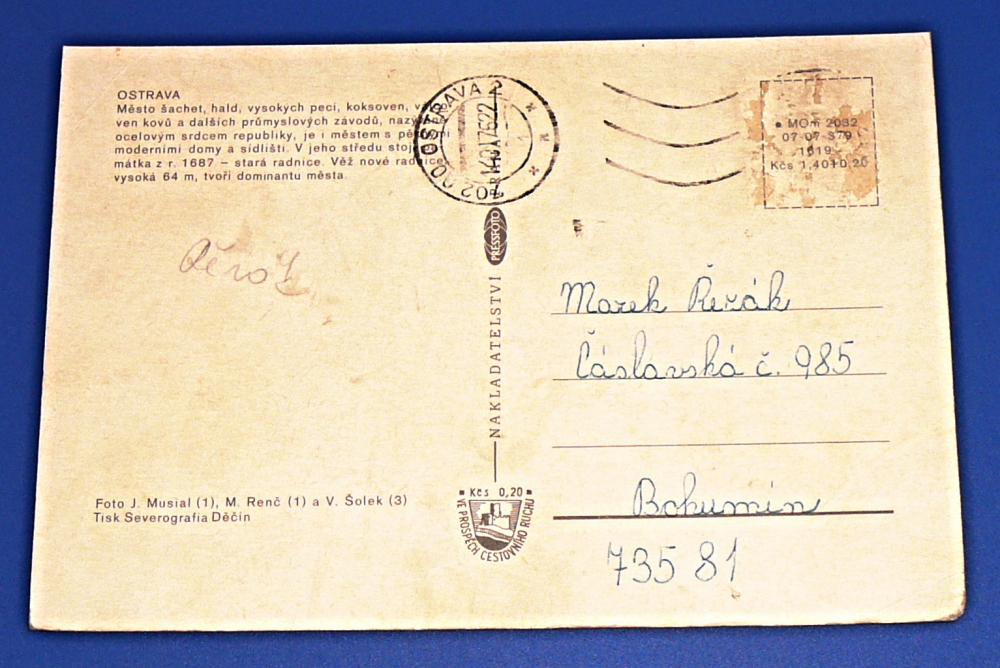 OSTRAVA
Město šachet, hald, vysokých pecí, koksoven,
ven kovů a dalších průmyslových závodů,
ocelovým srdcem republiky, je i městem s
moderními domy a sídlišti. V jeho středu stojí
mátka z r. 1687 – stará radnice. Věž nové radnice,
vysoká 64 m, tvoří dominantu města.
Foto J. Musial (1), M. Renč (1) a V. Šolek (3)
Tisk Severografia Děčín
702 00 OSTRAVA 2
NAKLADATELSTVÍ PRESSFOTO PRAHA
Kčs 0,20
VE PROSPĚCH CESTOVNÍHO RUCHU
MOm 2032
07-07-379
1619
Kčs 1,40+0,20
Marek Řezák
Čáslavská č. 985
Bohumín
735 81